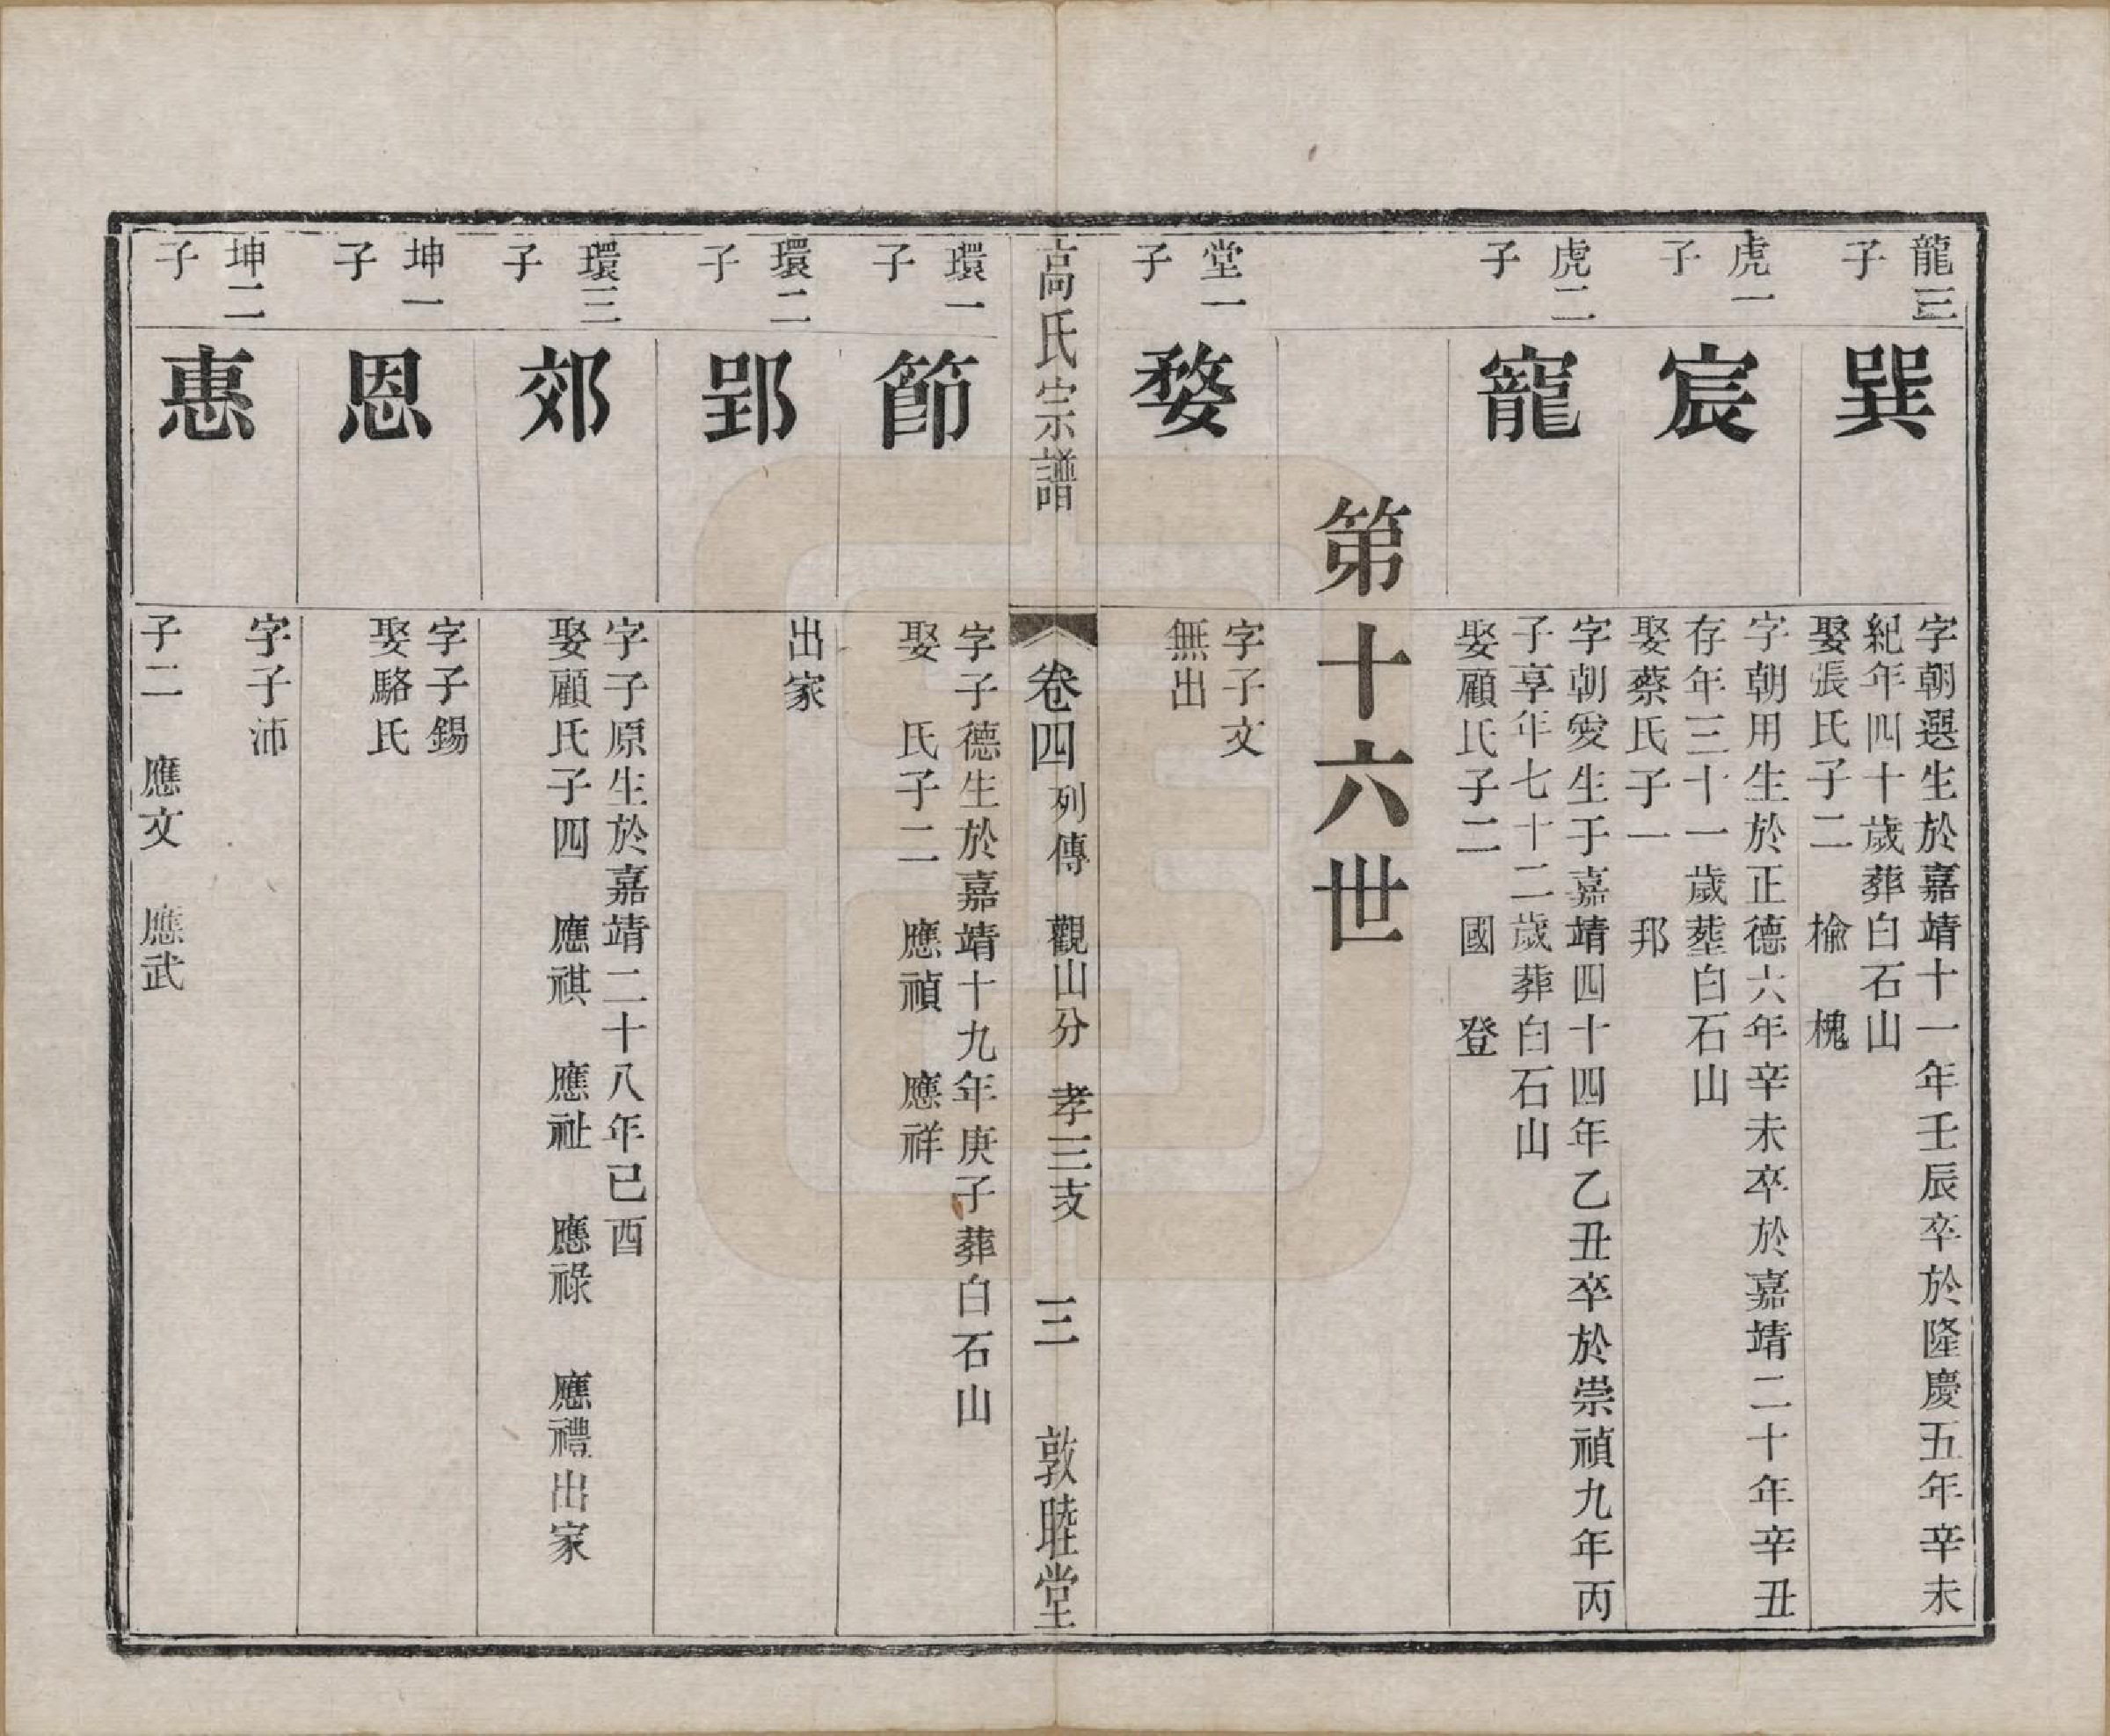 龍三
子
巽
字朝選生於嘉靖十一年壬辰卒於隆慶五年辛未
紀年四十歲葬白石山
娶張氏子二　檢　槐
虎一
子
宸
字朝用生於正德六年辛未卒於嘉靖二十年辛丑
存年三十一歲塟白石山
娶蔡氏子一　邦
虎二
子
寵
字朝愛生于嘉靖四十四年乙丑卒於崇禎九年丙
子享年七十二歲葬白石山
娶顧氏子二　國　登
第十六世
堂一
子
婺
字子文
無出
高氏宗譜
卷四 列傳　觀山分　孝三支　三　敦睦堂
環一
子
節
字子德生於嘉靖十九年庚子葬白石山
娶　氏子二　應禎　應祥
環二
子
郢
出家
環三
子
郊
字子原生於嘉靖二十八年已酉
娶顧氏子四　應祺　應祉　應祿　應禮出家
坤一
子
恩
字子錫
娶駱氏
坤二
子
惠
字子沛
子二　應文　應武